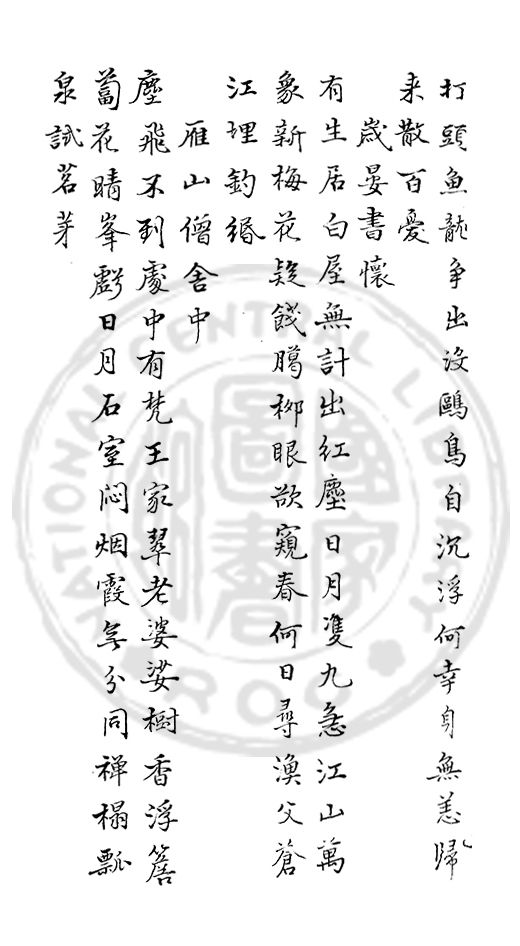 打頭魚龍争出没鷗鳥自沉浮何幸身無恙歸
来散百憂
歲晏書懷
有生居白屋無計出紅塵日月隻九急江山萬
象新梅花疑餞臈栁眼欲窺春何日尋漁父蒼
江理釣緡
雁山僧舍中
塵飛不到處中有梵王家翠老婆娑樹香浮簷
蔔花晴峯虧日月石室闷烟霞无分同禅榻瓢
泉試茗芽
NATIONAL CENTRAL LIBRARY
ROC